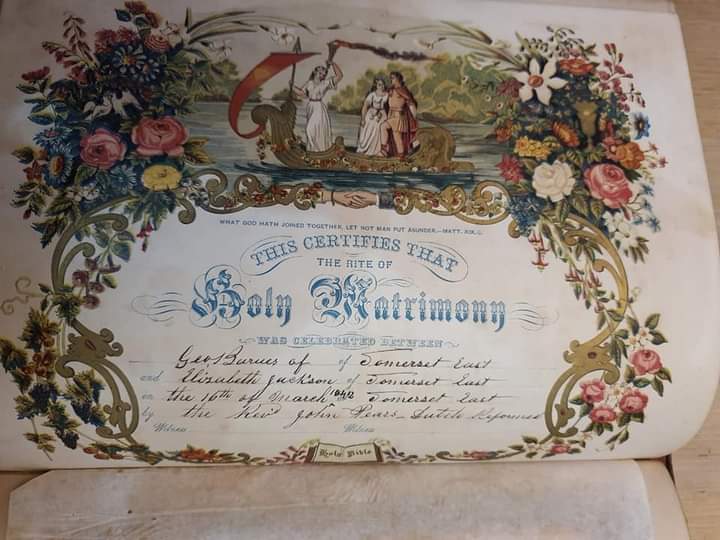 WHAT GOD HATH JOINED TOGETHER, LET NOT MAN PUT ASUNDER.—MATT. XIX.
THIS CERTIFIES THAT
THE RITE OF
Holy Matrimony
WAS CELEBRATED BETWEEN
Geo Barnes of of Somerset East
and Elizabeth Jackson of Somerset East
on the 16th of March 1842 Somerset East
by the Revd John Pears Dutch Reformed
Witness Witness
Holy Bible